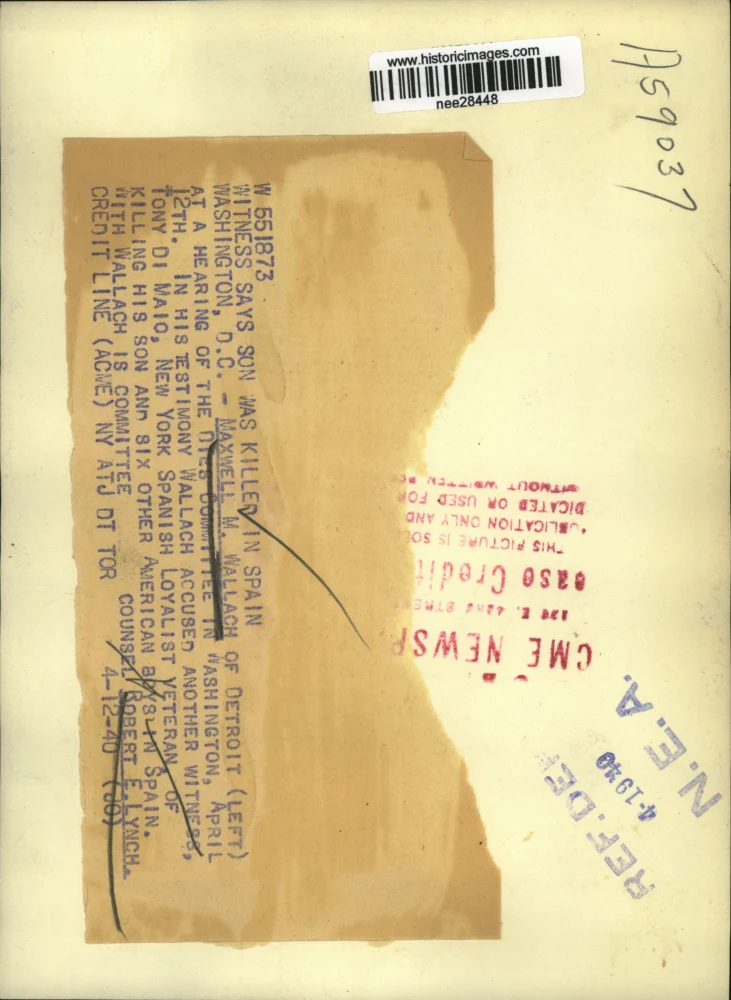 www.historicimages.com
nee28448
A59037
W 551873
WITNESS SAYS SON WAS KILLED IN SPAIN
WASHINGTON, D.C. - MAXWELL M. WALLACH OF DETROIT (LEFT)
AT A HEARING OF THE DIES COMMITTEE IN WASHINGTON, APRIL
12TH. IN HIS TESTIMONY WALLACH ACCUSED ANOTHER WITNESS,
TONY DI MAIO, NEW YORK SPANISH LOYALIST VETERAN, OF
KILLING HIS SON AND SIX OTHER AMERICAN BOYS IN SPAIN.
WITH WALLACH IS COMMITTEE COUNSEL ROBERT E. LYNCH.
CREDIT LINE (ACME) NY ATJ DT TOR 4-12-40 (JO)
CME NEWSP
E. 42ND STREE
ease Credit
THIS PICTURE IS SOL
UBLICATION ONLY AND
DICATED OR USED FOR
WITHOUT WRITTEN
REF. DEP
4-1940
N.E.A.